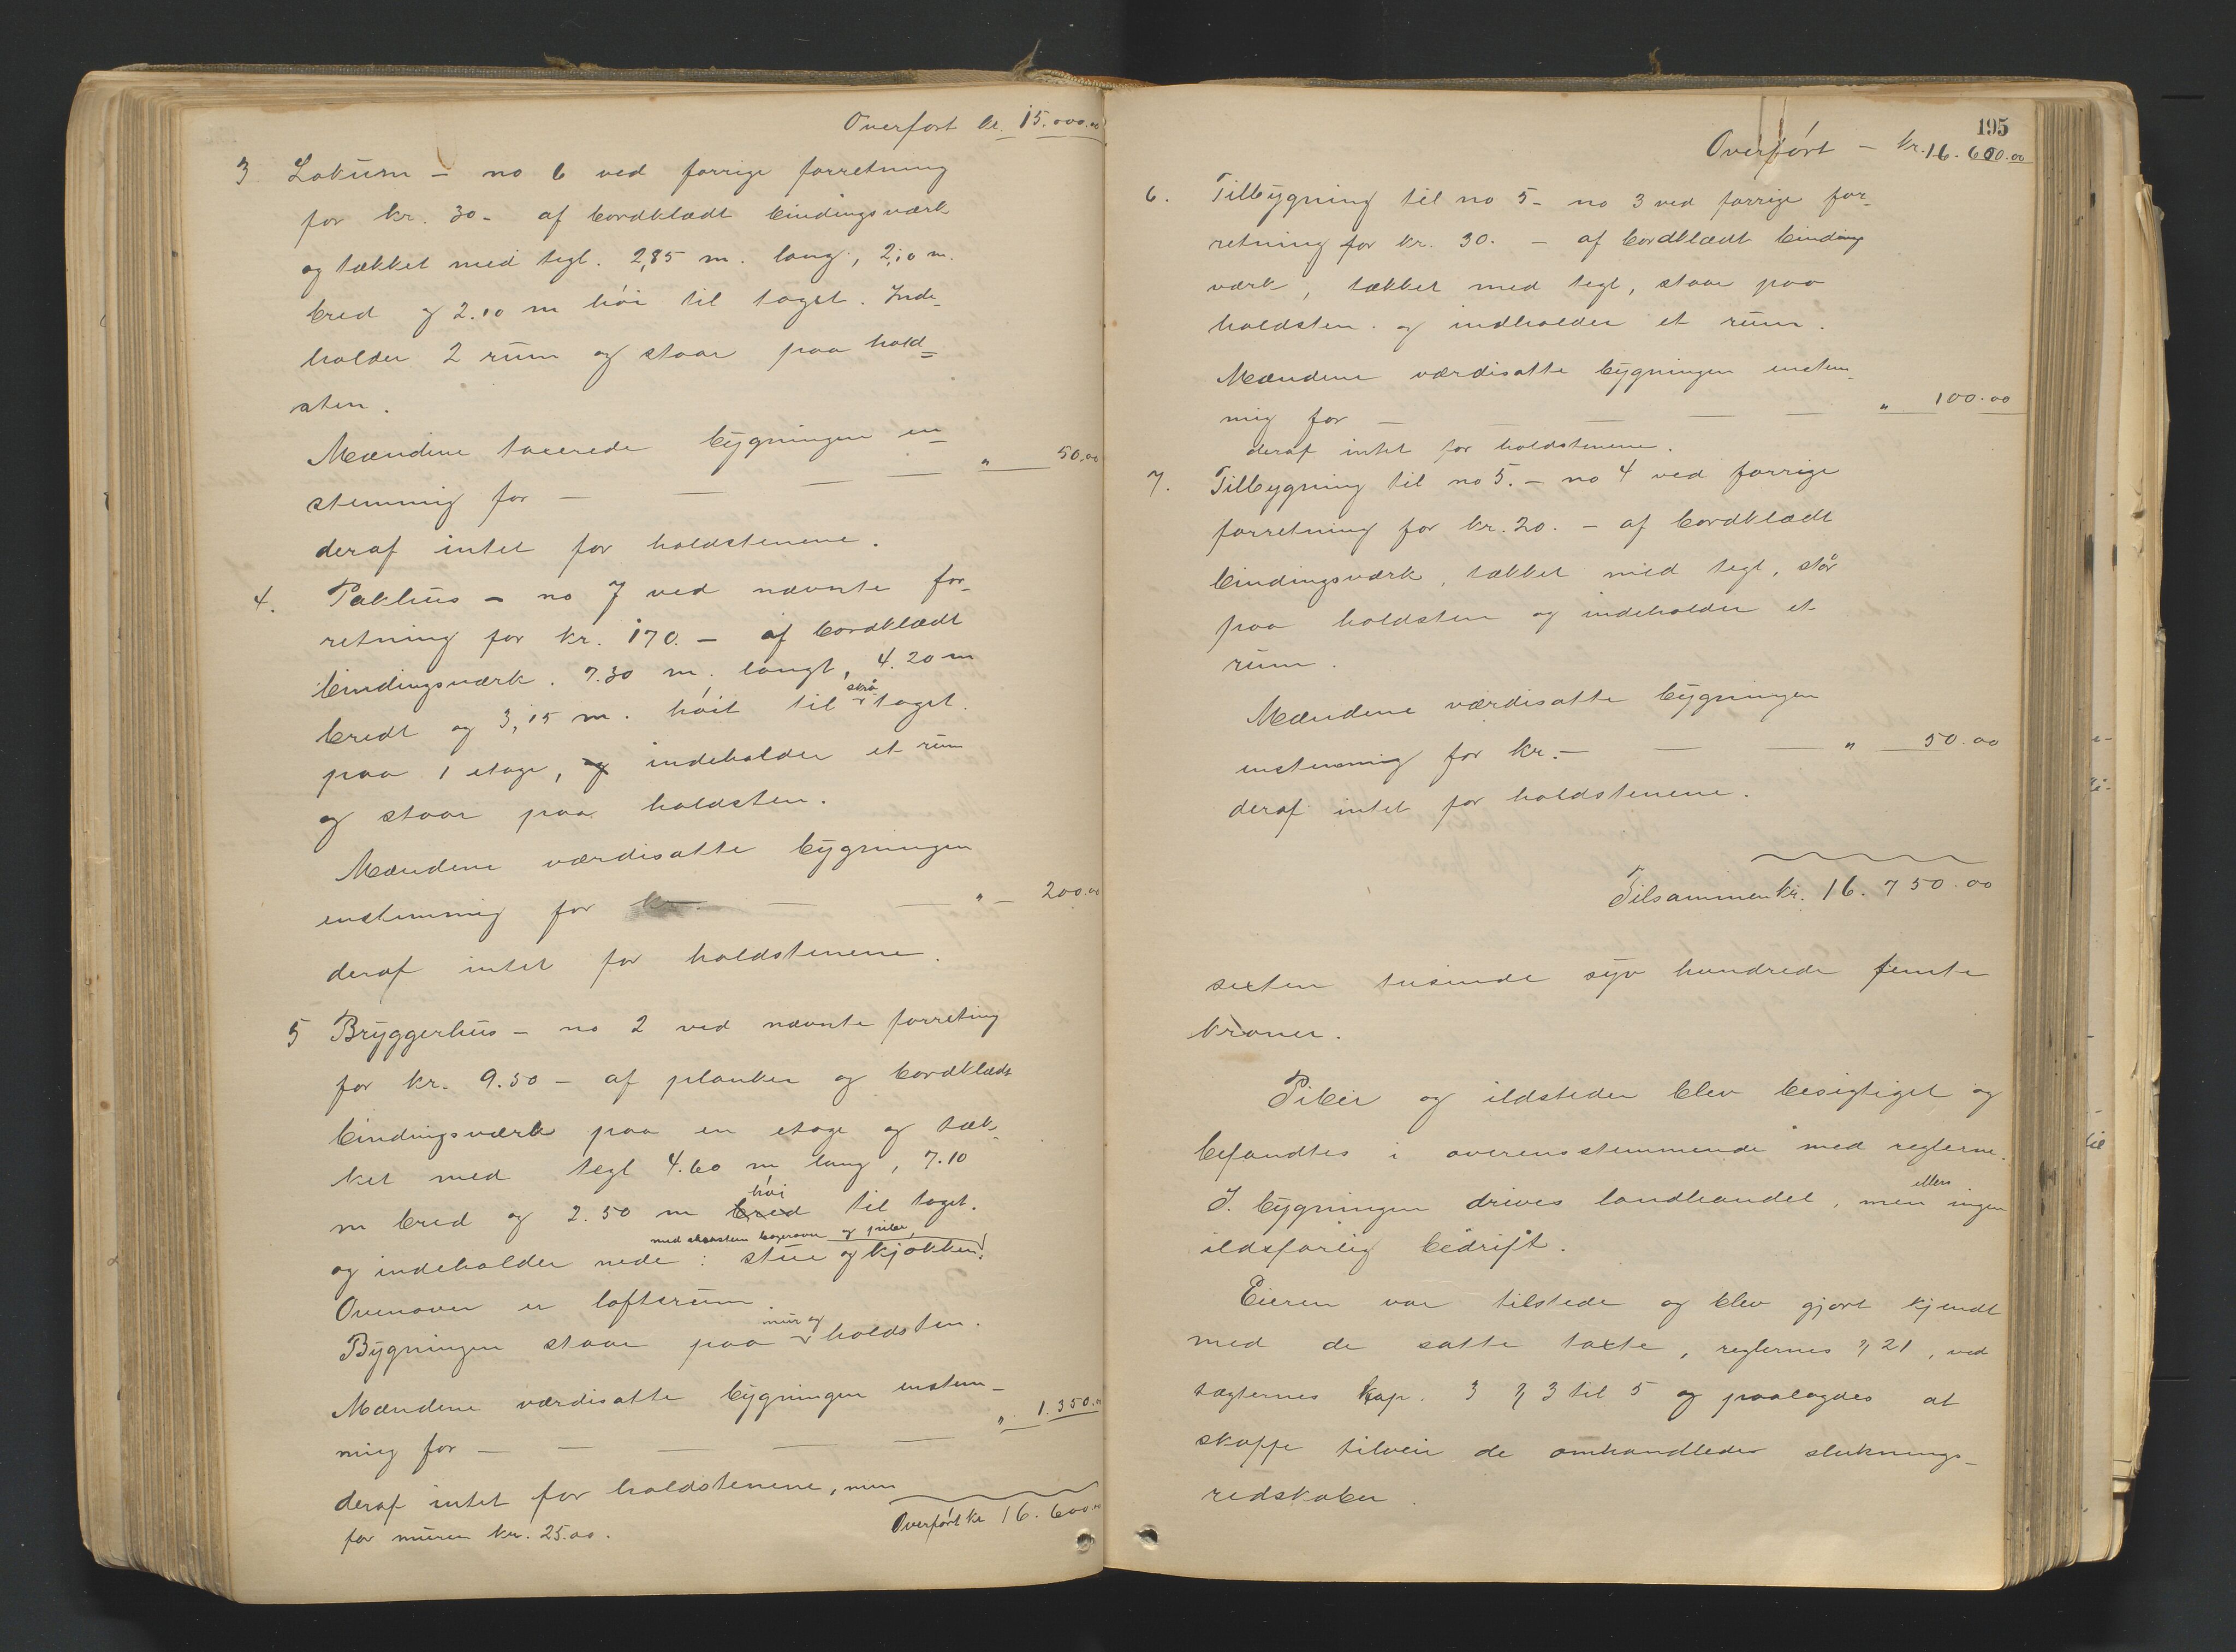 Overført kr. 15.000.00
3 Lokum – no 6 ved forrige forretning
for kr. 30 - af bordklædt bindingsværk
og tækket med tegl. 2,85 m. lang, 2,10 m.
bred og 2.10 m høi til taget. Inde-
holder 2 rum og staar paa hold=
sten.
Mændene taxerede bygningen en=
stemmig for — — — — " 50.00
deraf intet for holdstenene.
4. Pakhus – no 7 ved nævnte for-
retning for kr. 170. – af bordklædt
bindingsværk. 7.30 m. langt, 4.20 m
bredt og 3,15 m. høit til skrå taget.
paa 1 etage, og indeholder et rum
og staar paa holdsten.
Mændene værdisatte bygningen
enstemmig for kr. — — " — 200.00
deraf intet for holdstenene.
5 Bryggerhus – no 2 ved nævnte forreting
for kr. 9.50 – af planker og bordklædt
bindingsværk paa en etage og tæk-
ket med tegl 4.60 m lang, 7.10
m bred og 2.50 m bred høi til taget.
med skorsten bagerovn og pibe,
og indeholder nede: stue og kjøkken.
Ovenover er loftsrum.
Bygningen staar paa mur og holdsten.
Mændene værdisatte bygningen enstem-
mig for — — — — — " 1.350.00
deraf intet for holdstenene, men
for muren kr. 25.00.
Overført kr 16.600.00
195
Overført – kr. 16.600.00
6. Tilbygning til no 5 – no 3 ved forrige for-
retning for kr. 30. – af bordklædt bindings
værk, tækket med tegl, staar paa
holdsten og indholder et rum.
Mændene værdisatte bygningen enstem-
mig for — — — — — " 100.00
deraf intet for holdstenene.
7. Tilbygning til no 5. – no 4 ved forrige
forretning for kr. 20. – af bordklædt
bindingsværk, tækket med tegl, står
paa holdsten og indeholder et
rum.
Mændene værdisatte bygningen
enstemmig for kr. — — — " 50.00
deraf intet for holdstenene.
Tilsammen kr. 16.750.00
sexten tusinde syv hundrede femti
kroner.
Piber og ildsteder blev besigtiget og
befandtes i overensstemmende med reglerne.
I bygningen drives landhandel, men ellers ingen
ildsfarlig bedrift.
Eieren var tilstede og blev gjort kjendt
med de satte taxte, reglernes § 21, ved
tægternes kap. 3 § 3 til 5 og paalagdes at
skaffe tilveie de omhandleder sluknings-
redskaber.